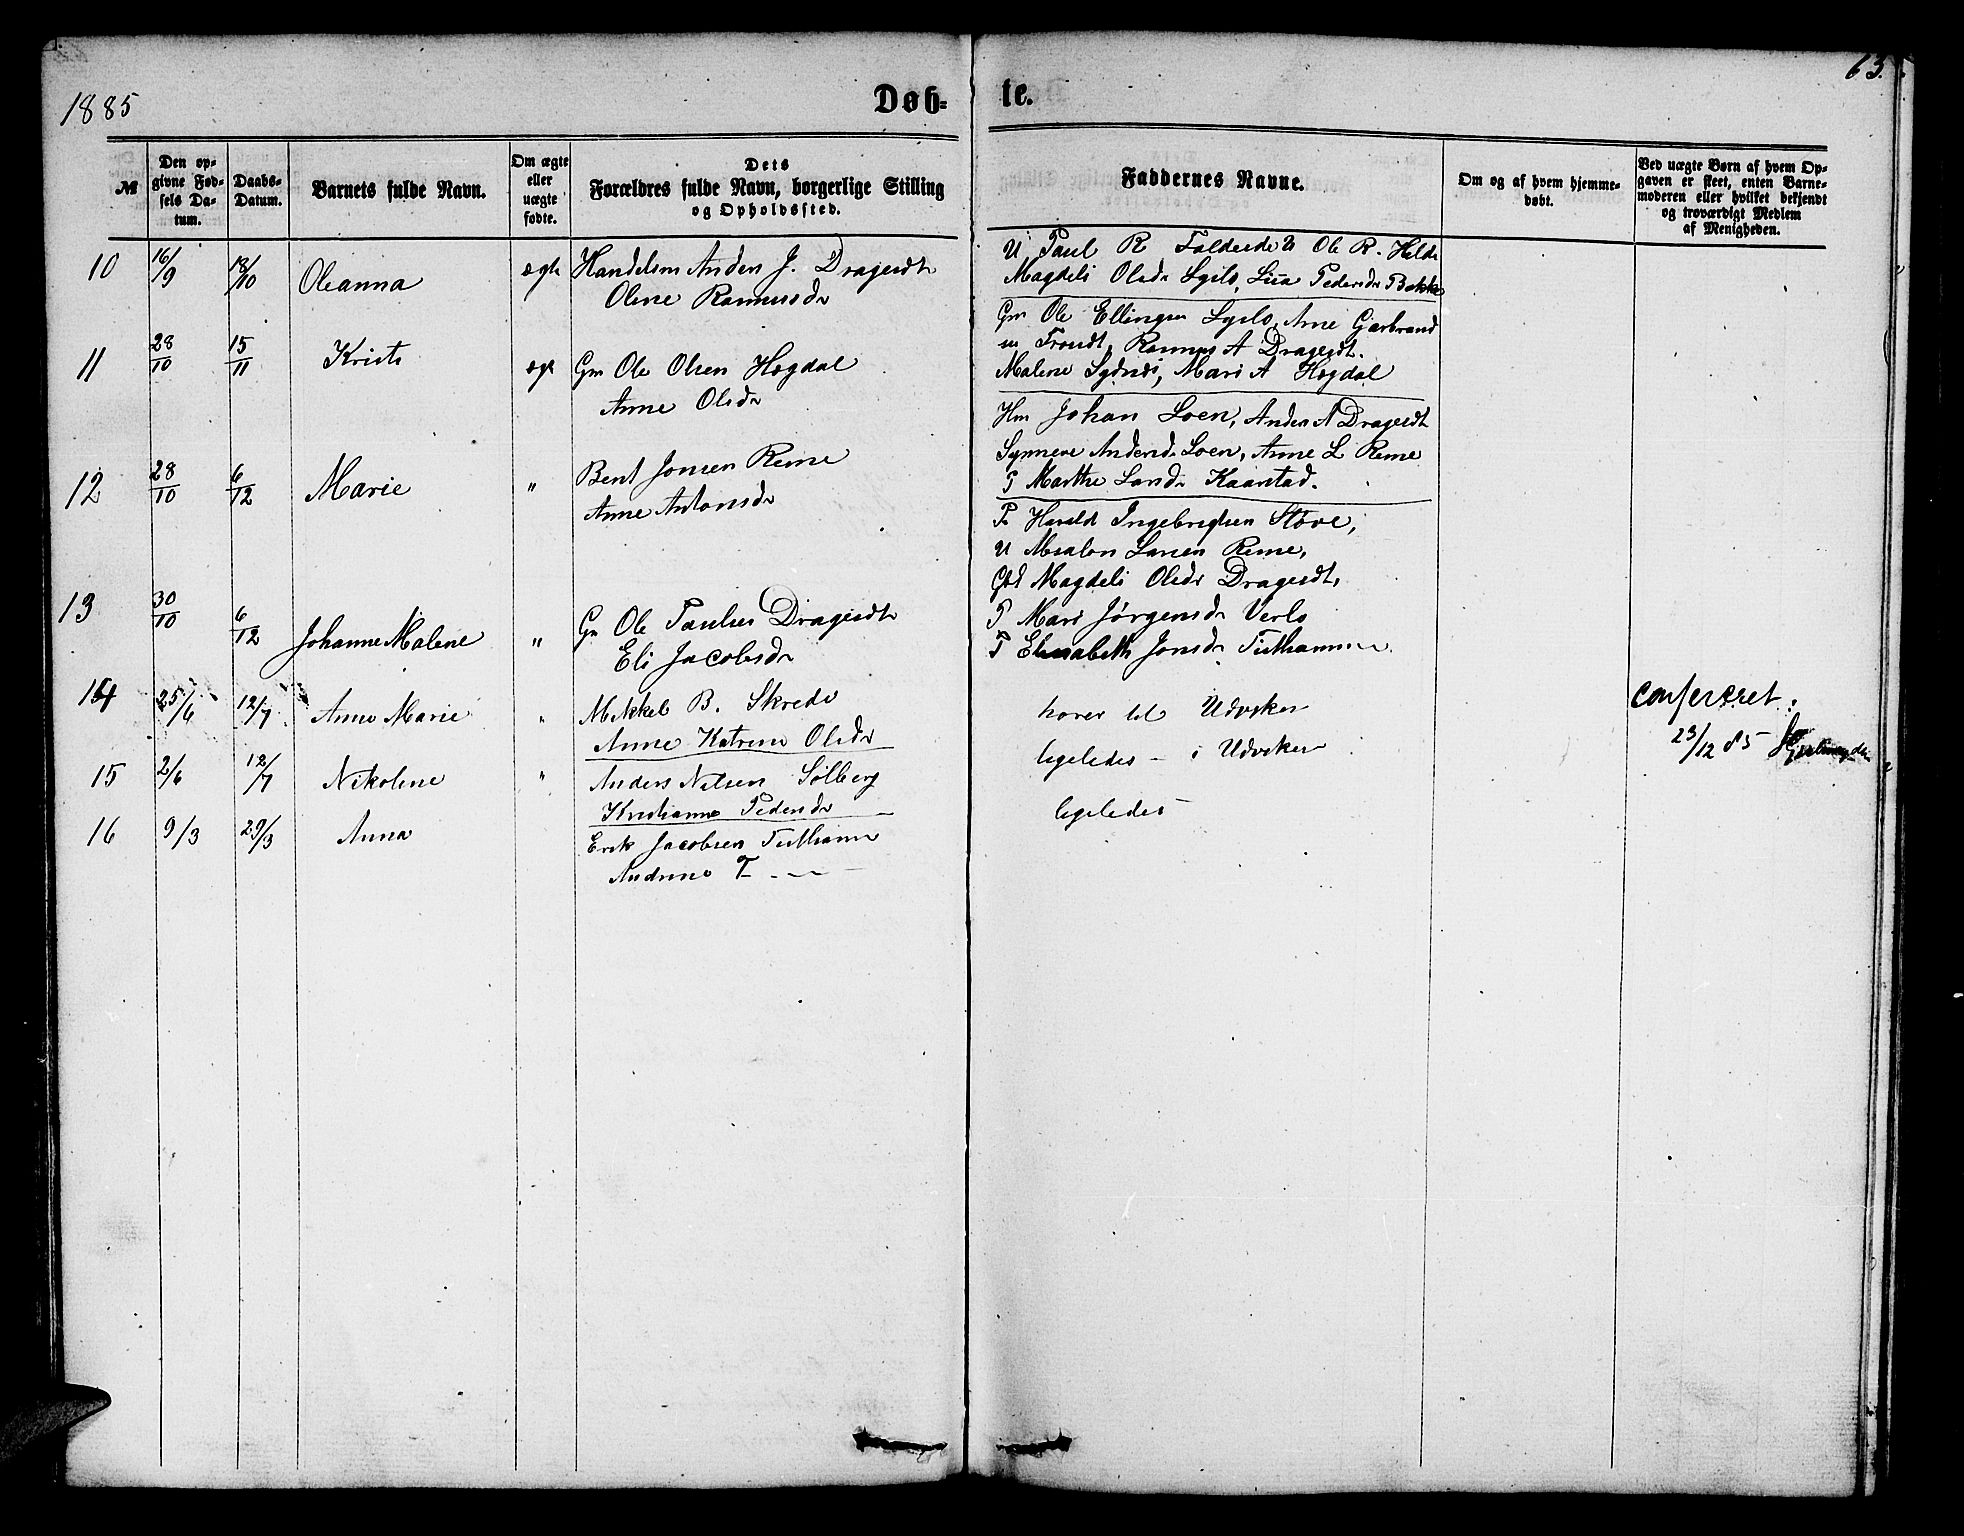 1885
Døb-
te.
63.
№
Den op-
givne Fød-
sels Da-
tum.
Daabs-
Datum.
Barnets fulde Navn.
Om ægte
eller
uægte
fødte.
Dets
Forældres fulde Navn, borgerlige Stilling
og Opholdssted.
Faddernes Navne.
Om og af hvem hjemme-
døbt.
Ved uægte Børn af hvem Op-
gaven er skeet, enten Barne-
moderen eller hvilket bekjendt
og troværdigt Medlem
af Menigheden.
10
16/9
18/10
Oleanna
ægte
Handelsm Anders J. Dragesdt
Oline Rasmusdr
U Paul R Faldeide U Ole R. Helde
Magdeli Olsdr Sgilo, Lisa Pedersdr Bakke
11
28/10
15/11
Kristi
ægt
Gm Ole Olsen Hogdal
Anne Olsdr
Gm Ole Ellingsen Sgilo, Arne Garbrand
sn Trondt, Rasmus A Dragesdt.
Malene Sydnes, Mari A Hogdal
12
28/10
6/12
Marie
"
Bent Jonsen Reme
Anne Antonsdr
Hm Johan Loen, Anders A Dragesdt
Synneve Andersd. Loen, Anne L Reme
P Marthe Larsdr Kaarstad.
13
30/10
6/12
Johanne Malene
"
Gm Ole Paulsen Dragesdt
Eli Jacobsdr
P Harald Ingebrigtsen Støve,
U Absalon Larsen Reme,
Gbd Magdeli Olsdr Dragesdt,
P Mari Jørgensdr Verlo
P Elisabeth Jonsdr Tisthammer
14
25/6
12/7
Anne Marie
"
Mikkel B. Skrede
Anne Katrine Olsdr
hører til Udviken
conferret:
23/12 85
15
2/6
12/7
Nikoline
"
Anders Nilsen Solberg
Kristianne Pedersdr
ligeledes - i Udviken
16
9/3
29/3
Anna
Erik Jacobsen Tisthamr
Andrine T - - -
ligeledes